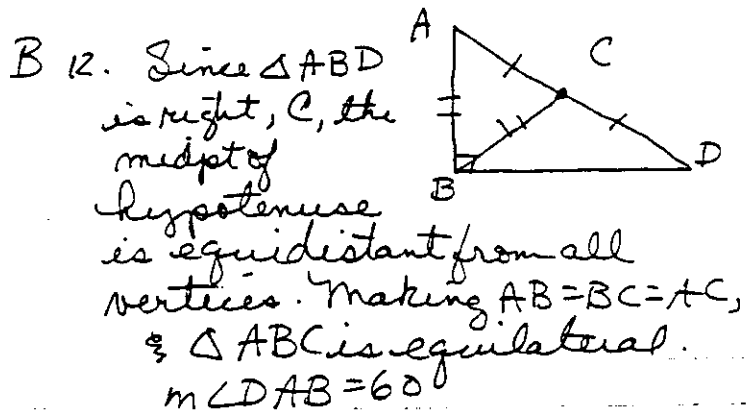 B 12. Since △ABD
is right, C, the
midpt of
hypotenuse
is equidistant from all
vertices. Making AB=BC=AC,
& △ABC is equilateral.
m∠DAB=60
A
C
B
D